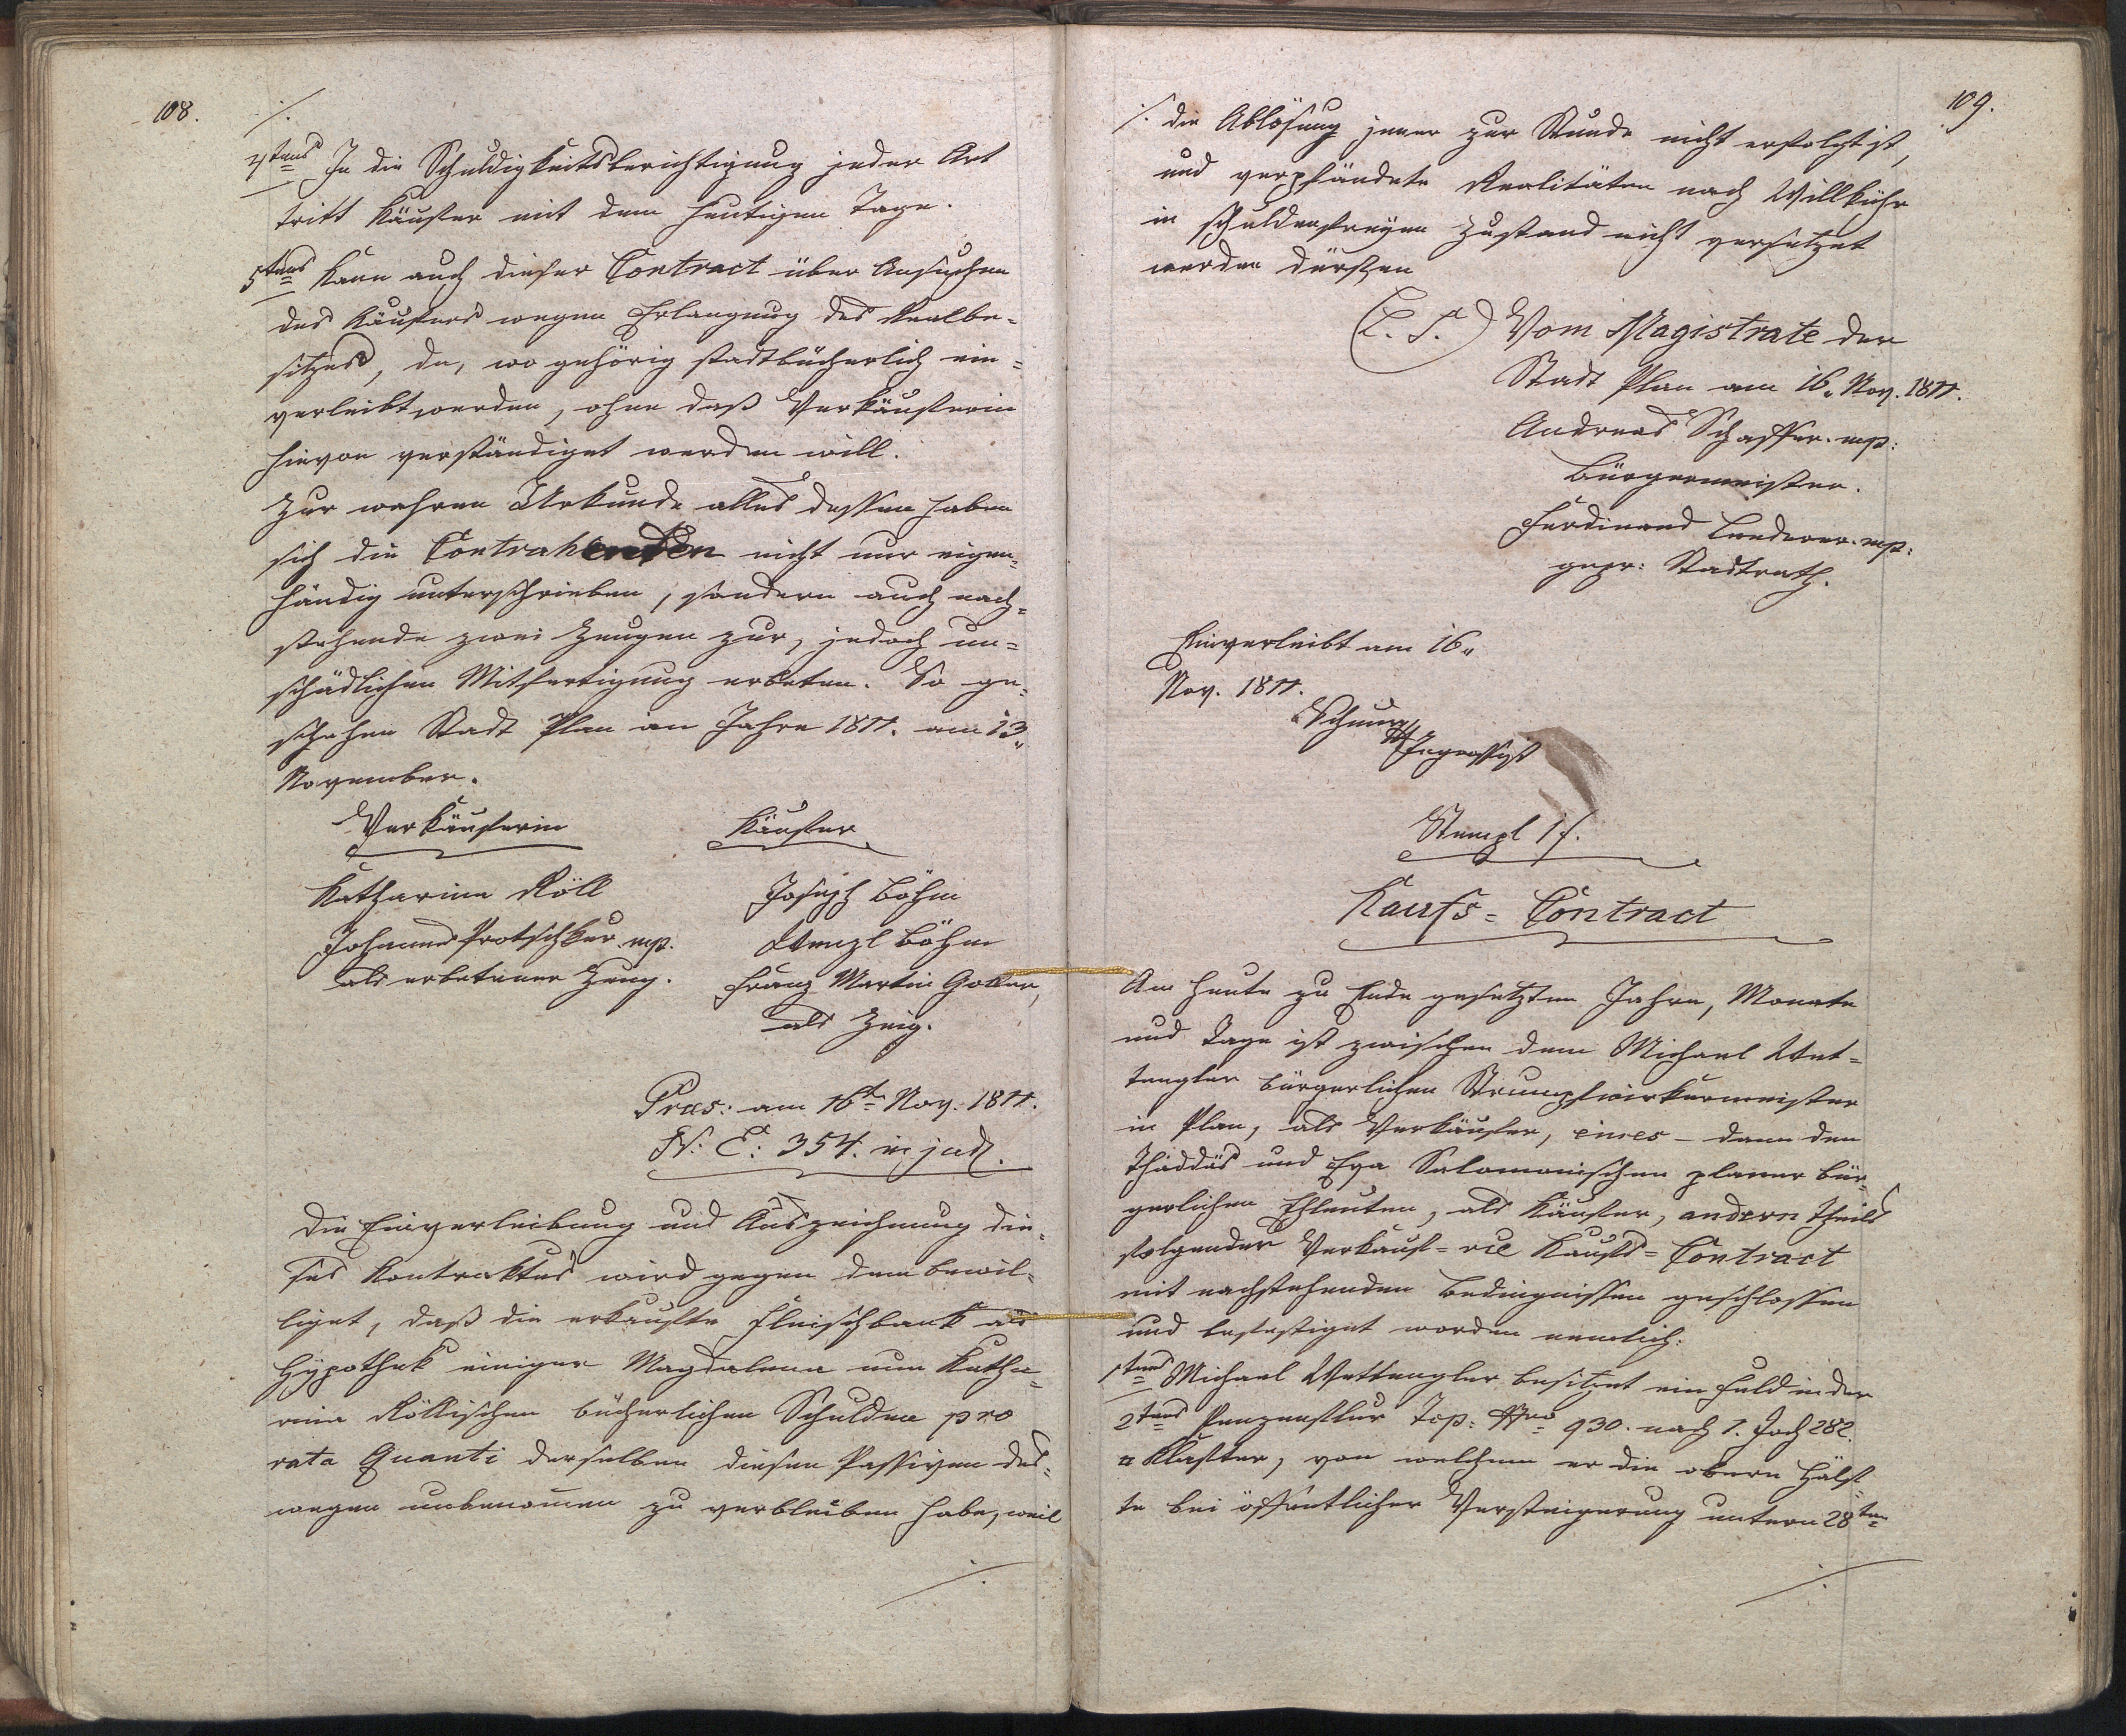 108.
./.
4tens In die Schuldigkeitsberichtigung jeder Art
tritt Käufer mit dem heutigen Tage.
5tens Kann auch dieser Contract über Ansuchen
des Käufers wegen Erlangung des Realbe=
sitzes, da, wo gehörig stadtbücherlich ein=
verleibt werden, ohne daß Verkäuferin
hievon verständiget werden will.
Zur wahren Urkunde alles dessen haben
sich die Contrahenten nicht nur eigen=
händig unterschrieben, sondern auch nach=
stehende zwei Zeugen zur, jedoch un=
schädlichen Mitfertigung erbeten. So ge=
schehen Stadt Plan im Jahre 1811. am 13.
November.
Verkäuferin Käufer
Katharina Röll Joseph Böhm
Johannes Protschker mp. Wenzl Böhm
als erbetener Zeug. Franz Martin Goller,
als Zeig.
Praes: am 16t Nov. 1811.
N: E: 354. in jud.
Die Einverleibung und Auszeichnung die=
ses Kontraktes wird gegen dem bewil=
liget, daß die erkaufte Fleischbank als
Hypothek einiger Magdalena nun Katha=
rina Röllischen bücherlichen Schulden pro
rata Quanti derselben diesen Passiven des=
wegen unbenommen zu verbleiben habe, weil
./.
109.
./. die Ablösung jener zur Stunde nicht erfolgt ist,
und verpfändete Realitäten nach Willkühr
in schuldenfreyen Zustand nicht versetzet
werden dürfen
(L. S.) Vom Magistrate der
Stadt Plan am 16. Nov. 1811.
Andreas Schaffer. mp:
Bürgermeister.
Ferdinand Lederer. mp:
gepr: Stadtrath.
Einverleibt am 16.
Nov. 1811.
Ingrossist
Stempl 1 f.
Kaufs = Contract
Am heute zu Ende gesetzten Jahre, Monate
und Tage ist zwischen dem Michael Wet=
tengler bürgerlichen Strumpfwirkermeister
in Plan, als Verkäufer, eines – dann den
Thäddäs und Eva Salomonischen planer bür=
gerlichen Eheleuten, als Käufer, andern Theils
folgender Verkauf = und Kaufs = Contract
mit nachstehenden Bedingnissen geschlossen
und befestiget worden nemlich:
1tens Michael Wettengler besitzet ein Feld in der
2tens Top: Nro 930. nach 1. Joch 282.
□ Klafter, von welchem er die obere Hälf=
te bei öffentlicher Versteigerung untern 28ten
./.